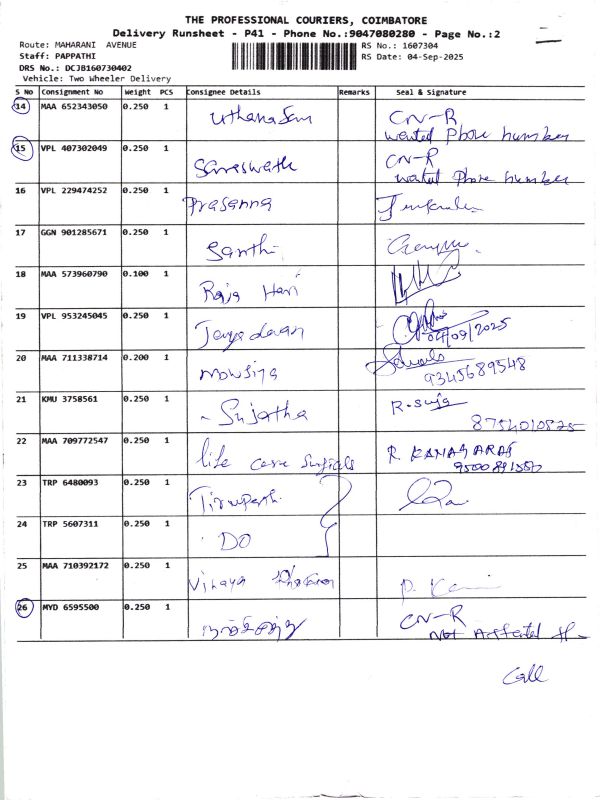 THE PROFESSIONAL COURIERS, COIMBATORE
Delivery Runsheet - P41 - Phone No.:9047080280 - Page No.:2
Route: MAHARANI AVENUE
RS No.: 1607304
Staff: PAPPATHI
RS Date: 04-Sep-2025
DRS No.: DCJB160730402
Vehicle: Two Wheeler Delivery
S No Consignment No Weight PCS Consignee Details Remarks Seal & Signature
14 MAA 652343050 0.250 1 CN-R
wanted Phone number
15 VPL 407302049 0.250 1 Saraswathi CN-R
wanted Phone number
16 VPL 229474252 0.250 1 Prasanna
17 GGN 901285671 0.250 1 Santhi
18 MAA 573960790 0.100 1 Raja Hari
19 VPL 953245045 0.250 1
04/09/2025
20 MAA 711338714 0.200 1 Mowsiya
9345689548
21 KMU 3758561 0.250 1 Sujatha R. Suja
8754010825
22 MAA 709772547 0.250 1 life care Surgicals R. KANAGARAJ
23 TRP 6480093 0.250 1
24 TRP 5607311 0.250 1 DO
25 MAA 710392172 0.250 1 Vinaya
26 MYD 6595500 0.250 1 CN-R
Not
Call